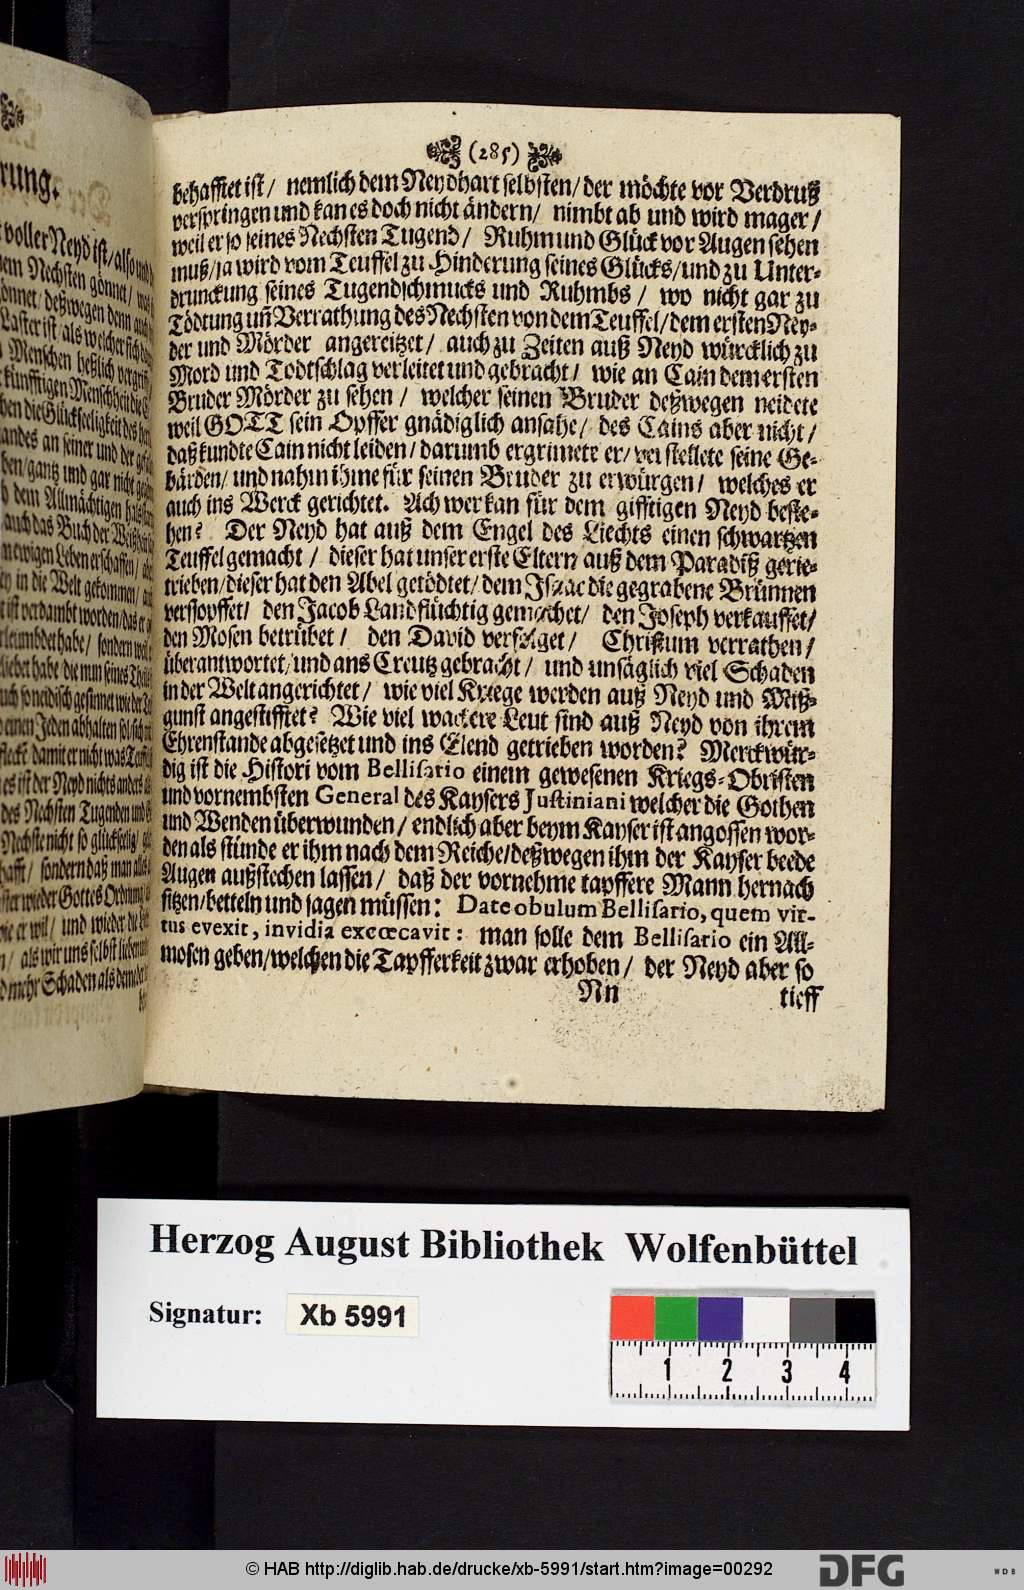 (285)
behafftet ist/ nemlich dem Neydhart selbsten/ der möchte vor Verdruß
verspringen und kan es doch nicht ändern/ nimbt ab und wird mager/
weil er so seines Nechsten Tugend/ Ruhm und Glück vor Augen sehen
muß/ ja wird vom Teuffel zu Hinderung seines Glücks/ und zu Unter-
drunckung seines Tugendschmucks und Ruhmbs/ wo nicht gar zu
Tödtung uñ Verrathung des Nechsten von dem Teuffel/ dem ersten Ney-
der und Mörder angereitzet/ auch zu Zeiten auß Neyd würcklich zu
Mord und Todtschlag verleitet und gebracht/ wie an Cain dem ersten
Bruder Mörder zu sehen/ welcher seinen Bruder deßwegen neidete
weil GOTT sein Opffer gnädiglich ansahe/ des Cains aber nicht/
daß kundte Cain nicht leiden/ darumb ergrimete er/ verstellete seine Ge-
bärden/ und nahm ihme für seinen Bruder zu erwürgen/ welches er
auch ins Werck gerichtet. Ach wer kan für dem gifftigen Neyd beste-
hen? Der Neyd hat auß dem Engel des Liechts einen schwartzen
Teuffel gemacht/ dieser hat unser erste Eltern auß dem Paradiß getrie-
trieben/ dieser hat den Abel getödtet/ dem Isaac die gegrabene Brünnen
verstopffet/ den Jacob Landflüchtig gemachet/ den Joseph verkauffet/
den Mosen betrübet/ den David verfolget/ Christum verrathen/
überantwortet/ und ans Creutz gebracht/ und unsäglich viel Schaden
in der Welt angerichtet/ wie viel Kriege werden auß Neyd und Miß-
gunst angestifftet? Wie viel wackere Leut sind auß Neyd von ihrem
Ehrenstande abgesetzet und ins Elend getrieben worden? Merckwür-
dig ist die Histori vom Bellisario einem gewesenen Kriegs-Obristen
und vornembsten General des Kaysers Justiniani welcher die Gothen
und Wenden überwunden/ endlich aber beym Kayser ist angossen wor-
den als stünde er ihm nach dem Reiche/ deßwegen ihm der Kayser beede
Augen außstechen lassen/ daß der vornehme tapffere Mann hernach
sitzen/ betteln und sagen müssen: Date obulum Bellisario, quem vir-
tus evexit, invidia excœcavit: man solle dem Bellisario ein All-
mosen geben/ welchen die Tapfferkeit zwar erhoben/ der Neyd aber so
Nn tieff
Herzog August Bibliothek Wolfenbüttel
Signatur: Xb 5991
1 2 3 4
© HAB http://diglib.hab.de/drucke/xb-5991/start.htm?image=00292
DFG
WDB